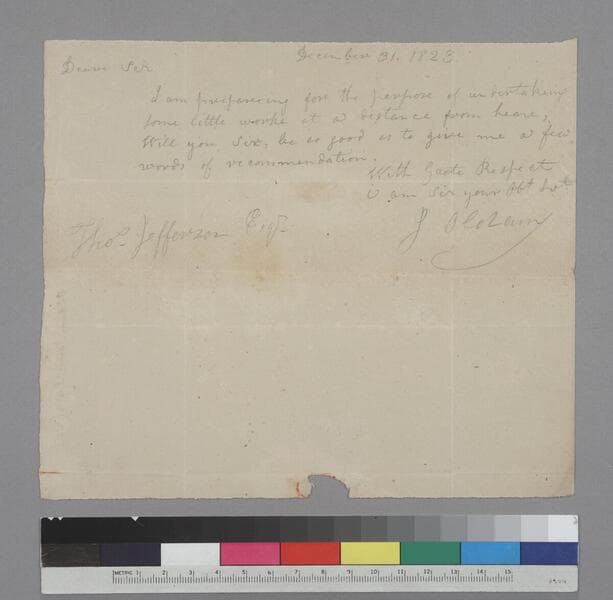 December 31. 1823.
Deare Sir
I am prepareing fore the perpose of undertakeing
some little worke at a distance from heare,
Will you Sir, be so good as to give me a few
words of recommendation.
With Grate Respect
I am Sir your Obt Svt
J Oldham
Thos. Jefferson Esqr.
METRIC 1 2 3 4 5 6 7 8 9 10 11 12 13 14 15